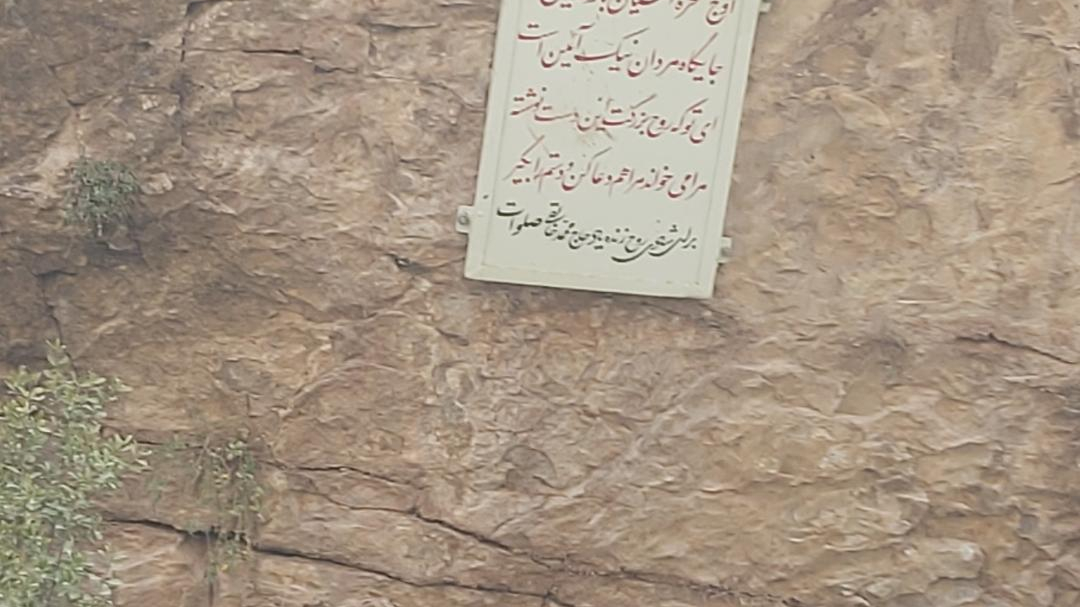 اوج صخره آشیان
جایگاه مردان نیک آیین است
ای تو که روح بزرگت این دست نوشته
مرا می خواند مرا هم دعا کن و دستم را بگیر
برای شادی روح زنده یاد حاج محمد صلوات